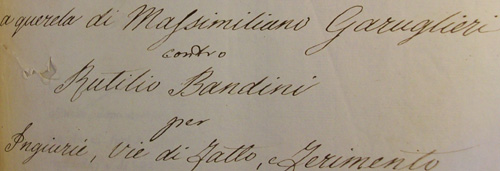 a querela di Massimiliano Garuglieri
contro
Rutilio Bandini
per
Ingiurie, vie di fatto, e Ferimento